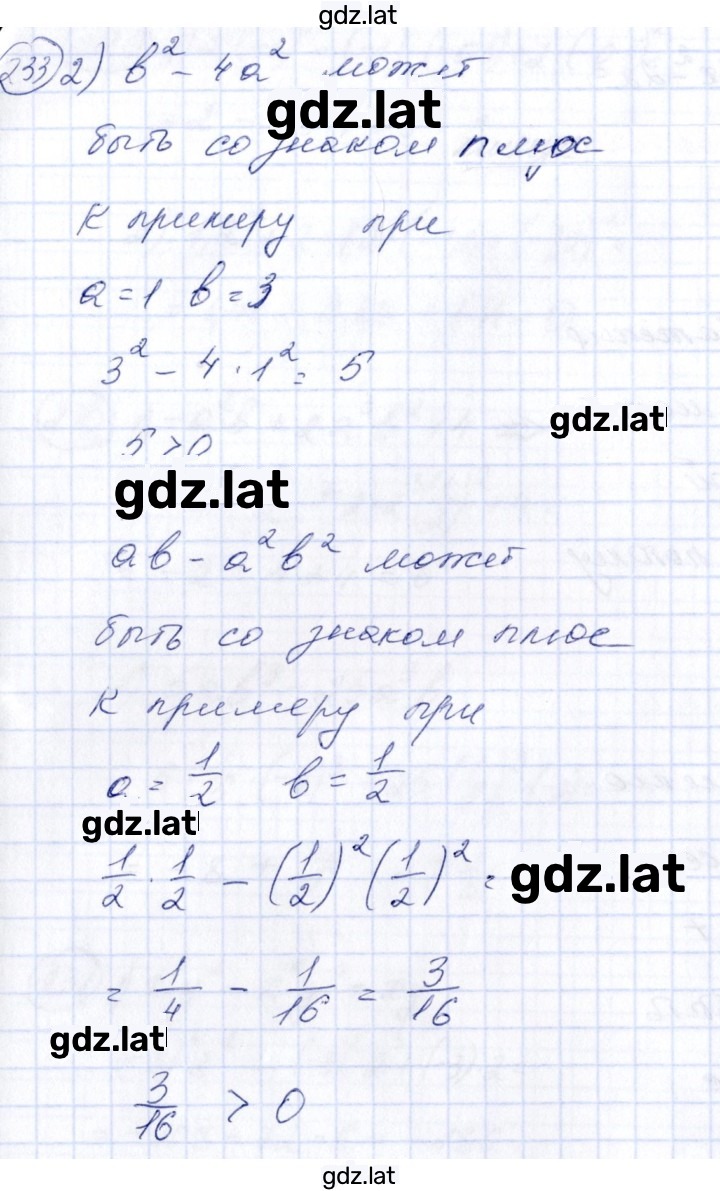 gdz.lat
233 2) b² - 4a² может
gdz.lat
быть со знаком плюс
К примеру при
a = 1 b = 3
3² - 4 · 1² = 5
gdz.lat
5 > 0
gdz.lat
ab - a² b² может
быть со знаком плюс
К примеру при
a = 1/2 b = 1/2
gdz.lat
1/2 · 1/2 - (1/2)² (1/2)² =
gdz.lat
= 1/4 - 1/16 = 3/16
gdz.lat
3/16 > 0
gdz.lat